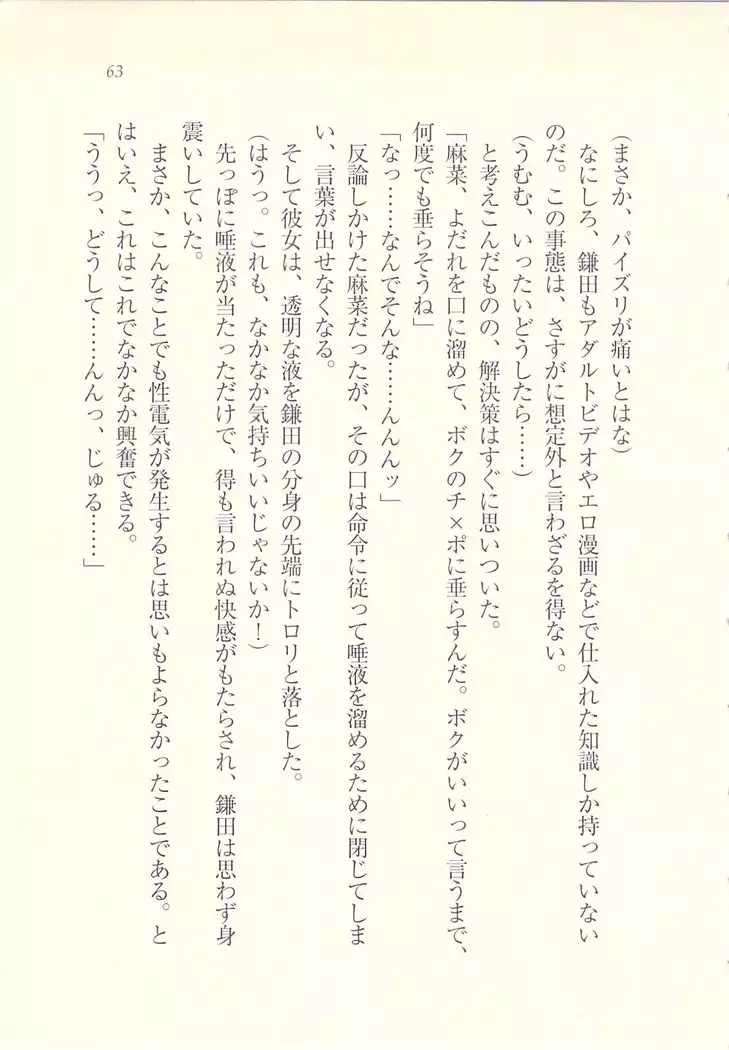 63
(まさか、パイズリが痛いとはな)
なにしろ、鎌田もアダルトビデオやエロ漫画などで仕入れた知識しか持っていない
のだ。この事態は、さすがに想定外と言わざるを得ない。
(うむむ、いったいどうしたら……)
と考えこんだものの、解決策はすぐに思いついた。
「麻菜、よだれを口に溜めて、ボクのチ×ポに垂らすんだ。ボクがいいって言うまで、
何度でも垂らそうね」
「なっ……なんでそんな……んんんッ」
反論しかけた麻菜だったが、その口は命令に従って唾液を溜めるために閉じてしま
い、言葉が出せなくなる。
そして彼女は、透明な液を鎌田の分身の先端にトロリと落とした。
(はうっ。これも、なかなか気持ちいいじゃないか！)
先っぽに唾液が当たっただけで、得も言われぬ快感がもたらされ、鎌田は思わず身
震いしていた。
まさか、こんなことでも性電気が発生するとは思いもよらなかったことである。と
はいえ、これはこれでなかなか興奮できる。
「ううっ、どうして……んんっ、じゅる……」